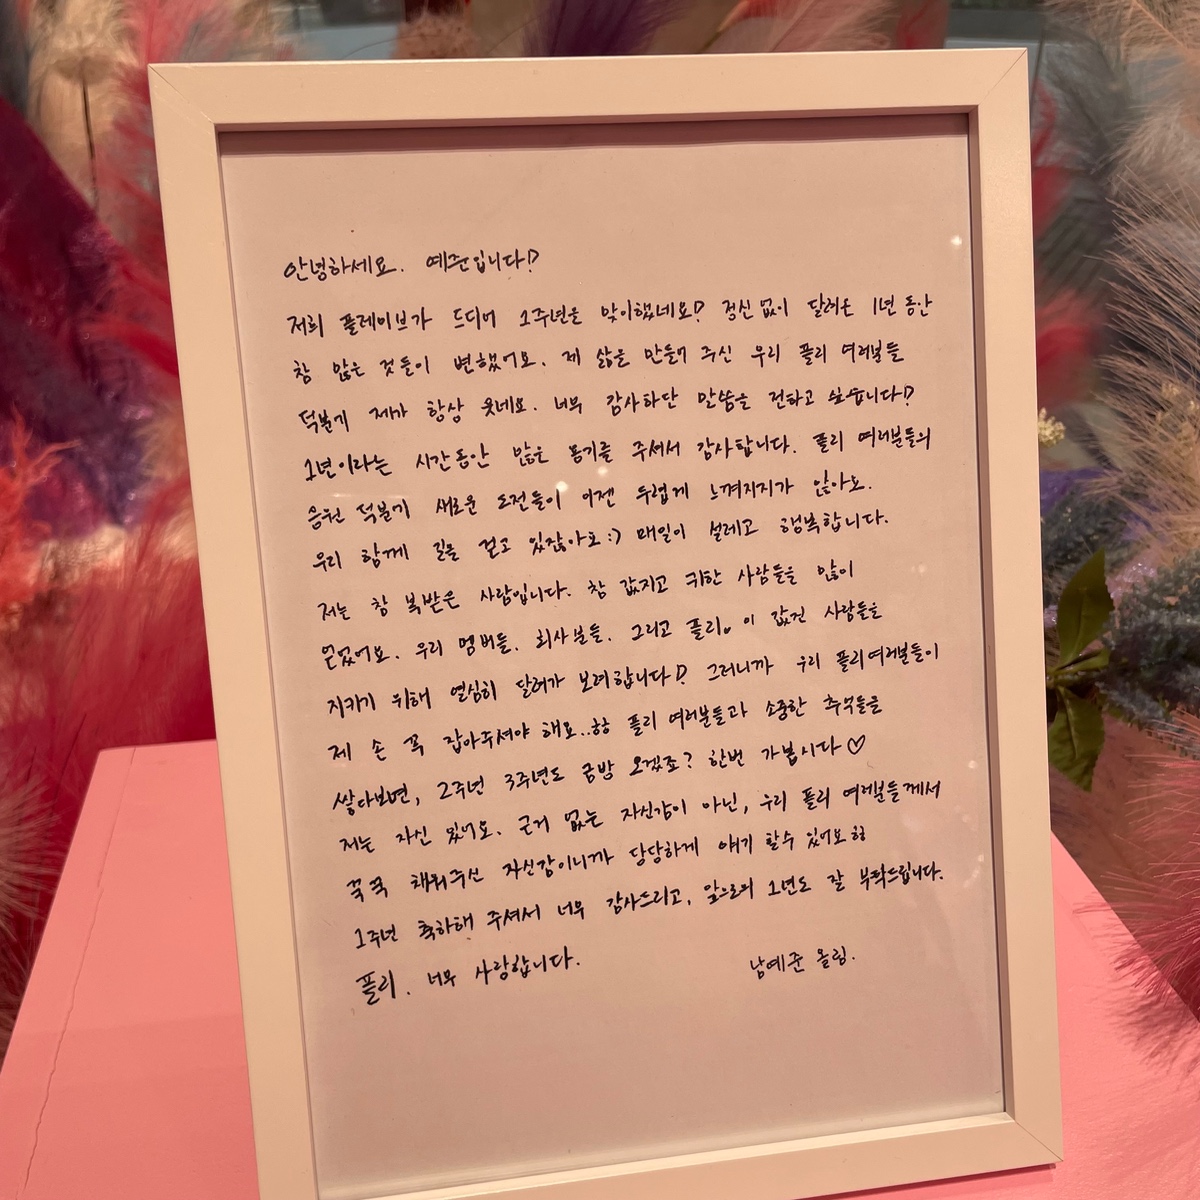 안녕하세요. 예준입니다!
저희 플레이브가 드디어 1주년을 맞이했네요! 정신없이 달려온 1년 동안
참 많은 것들이 변했어요. 제 삶을 만들어 주신 우리 플리 여러분들
덕분에 제가 항상 웃네요. 너무 감사하단 말씀을 전하고 싶습니다!
1년이라는 시간동안 많은 용기를 주셔서 감사합니다. 플리 여러분들의
응원 덕분에 새로운 도전들이 이젠 두렵게 느껴지지가 않아요.
우리 함께 길을 걷고 있잖아요 :) 매일이 설레고 행복합니다.
저는 참 복받은 사람입니다. 참 값지고 귀한 사람들을 많이
얻었어요. 우리 멤버들. 회사분들. 그리고 플리. 이 값진 사람들을
지키기 위해 열심히 달려가 보려합니다! 그러니까 우리 플리여러분들이
제 손 꼭 잡아주셔야 해요..ㅎㅎ 플리 여러분들과 소중한 추억들을
쌓다보면, 2주년 3주년도 금방 오겠죠? 한번 가봅시다 ♡
저는 자신 있어요. 근거 없는 자신감이 아닌, 우리 플리 여러분들께서
꾹꾹 채워주신 자신감이니까 당당하게 얘기 할수 있어요 ㅎㅎ
1주년 축하해 주셔서 너무 감사드리고, 앞으로의 1년도 잘 부탁드립니다.
플리. 너무 사랑합니다. 남예준 올림.